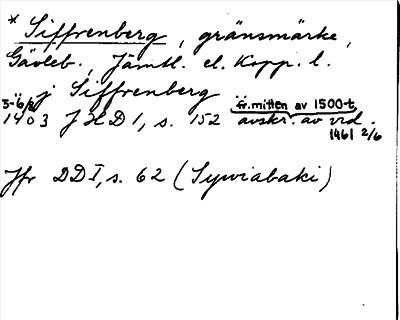 * Siffrenberg, gränsmärke,
Gävleb., Jämtl. el. Kopp. l.
j Siffrenberg
5-6/6 1403 JHD 1, s. 152 avskr. av vid.
fr. mitten av 1500-t,
1461 2/6
Jfr DD I, s. 62 (Sywiabaki)